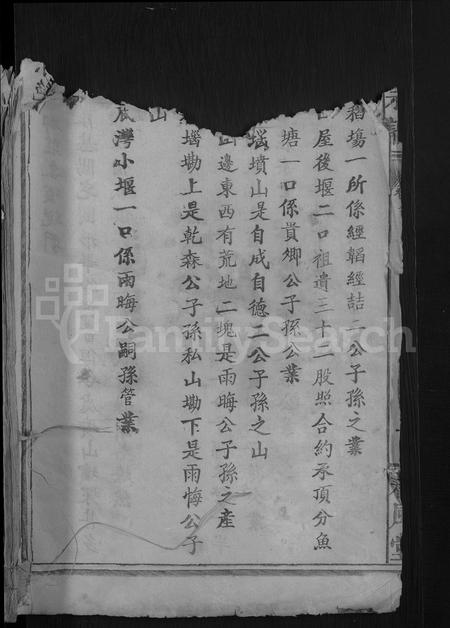 稻塲一所係經韜經詰二公子孫之業
屋後堰二口祖遺三十二股照合約承頂分魚
塘一口係貢卿公子孫公業
墳山是自成自德二公子孫之山
山邊東西有荒地二塊是雨晦公子孫之産
塥勘上是乾森公子孫私山勘下是雨悔公子
山
底灣小堰一口係雨晦公嗣孫管業
FamilySearch